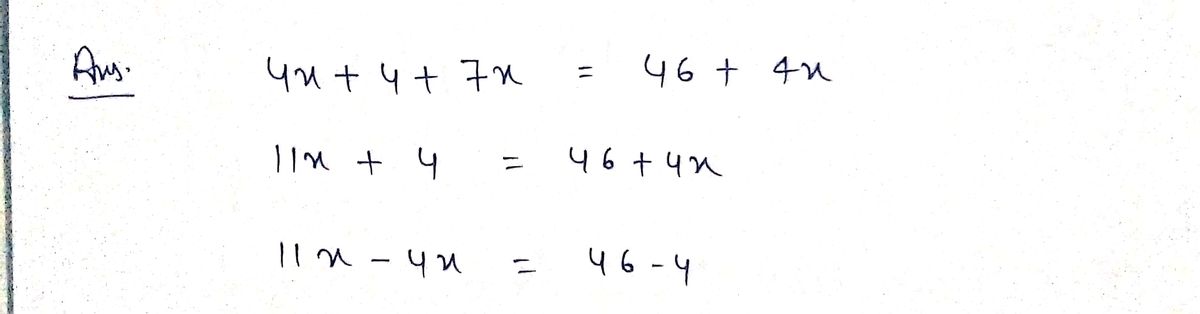 Ans. 4x + 4 + 7x = 46 + 4x
11x + 4 = 46 + 4x
11x - 4x = 46 - 4